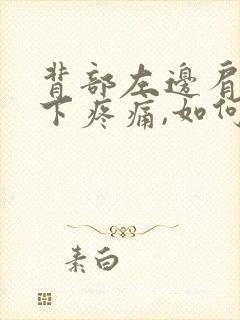 背部左邊肩
下疼痛,如何
素白